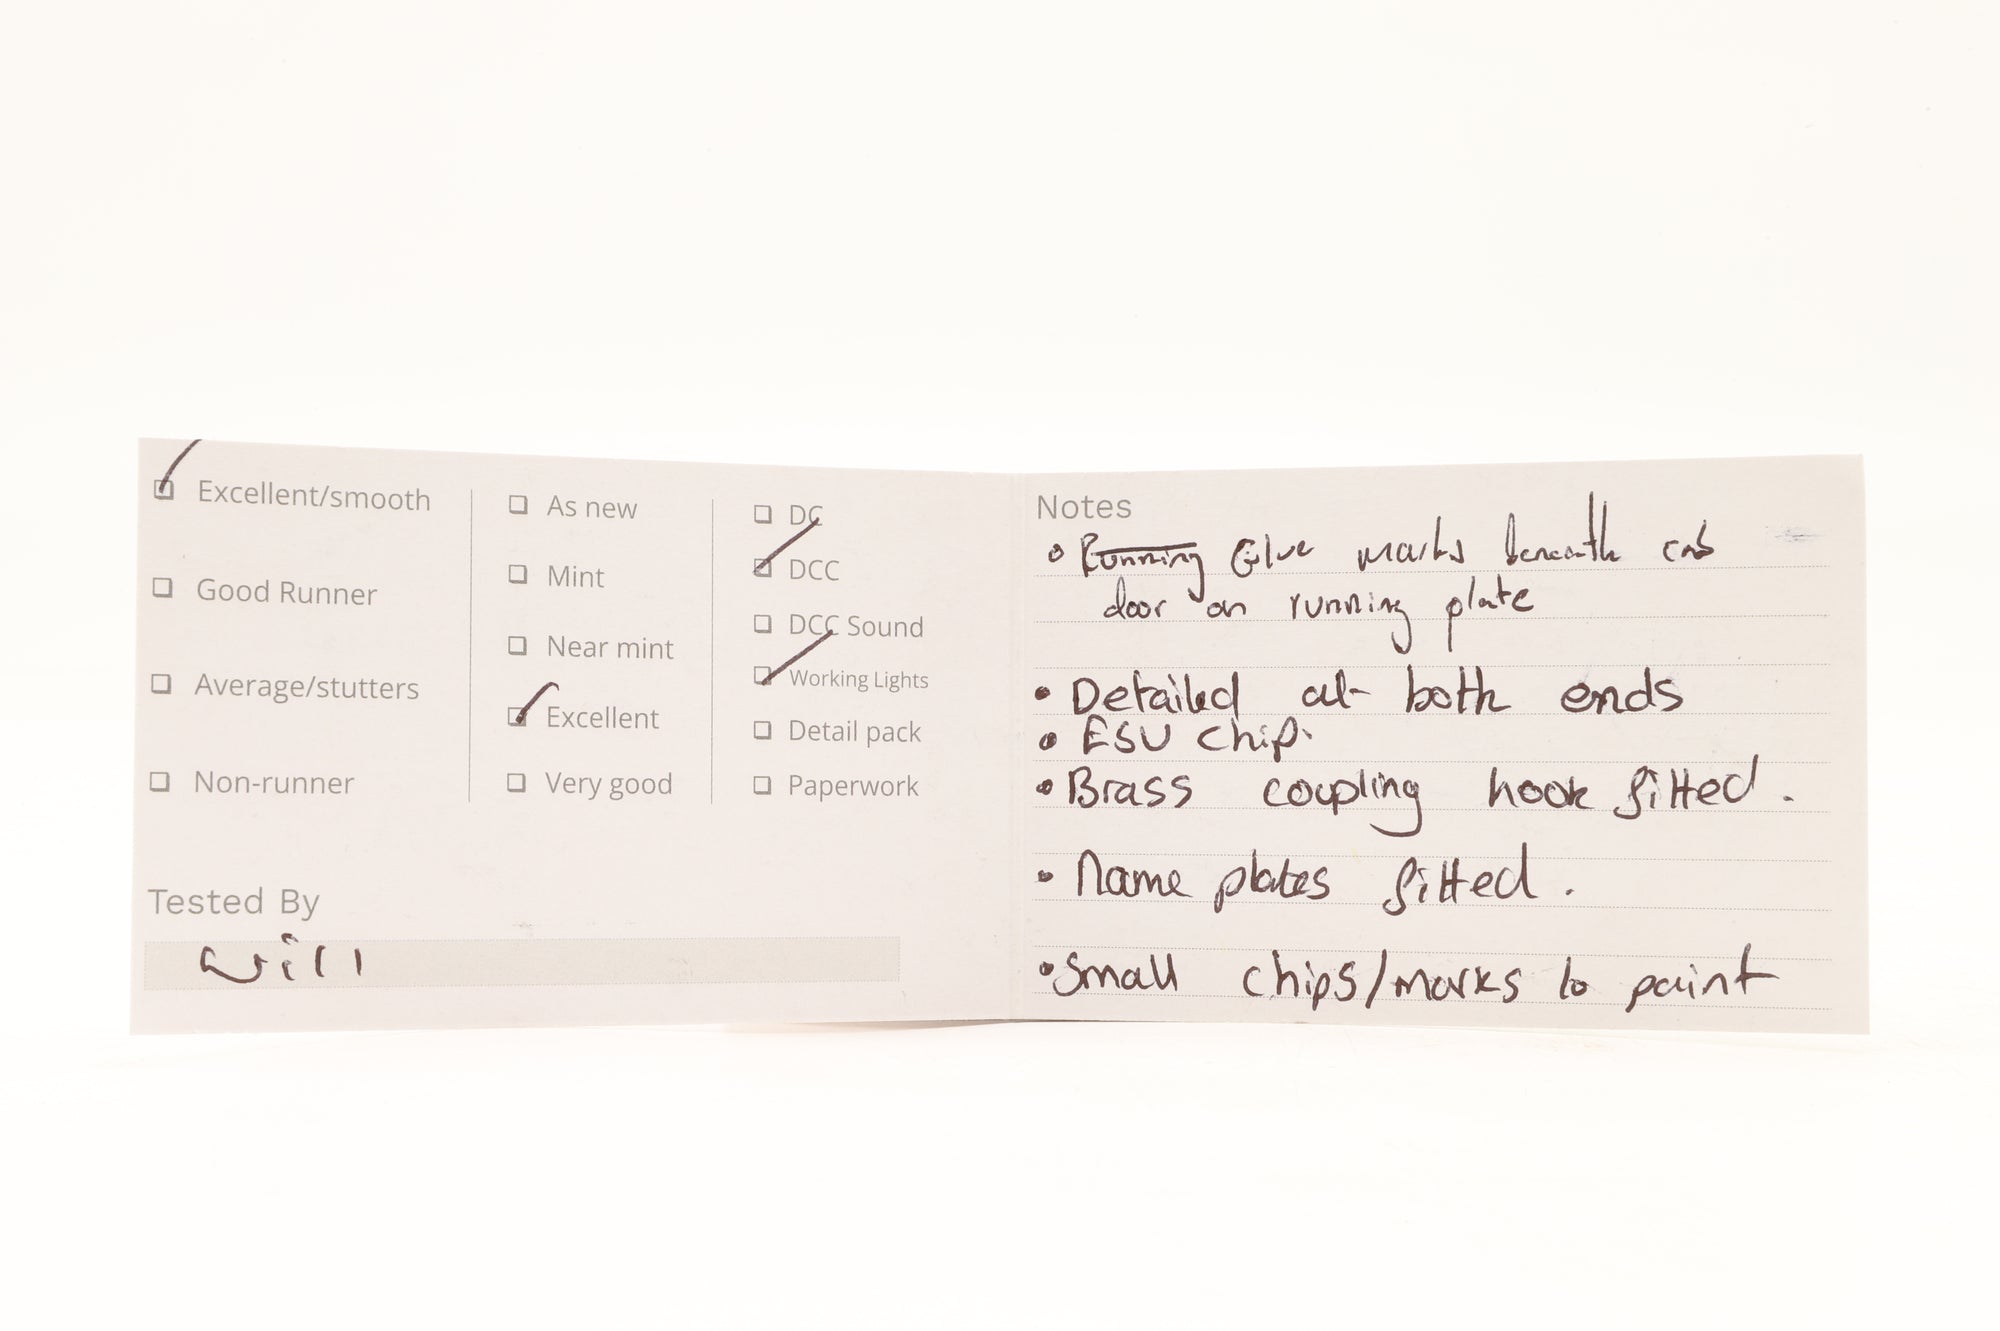 Excellent/smooth
Good Runner
Average/stutters
Non-runner
As new
Mint
Near mint
Excellent
Very good
DC
DCC
DCC Sound
Working Lights
Detail pack
Paperwork
Tested By
Will
Notes
• Running Glue marks beneath cab
door on running plate
• Detailed at both ends
• ESU chip.
• Brass coupling hook fitted.
• Name plates fitted.
• Small chips/marks to paint